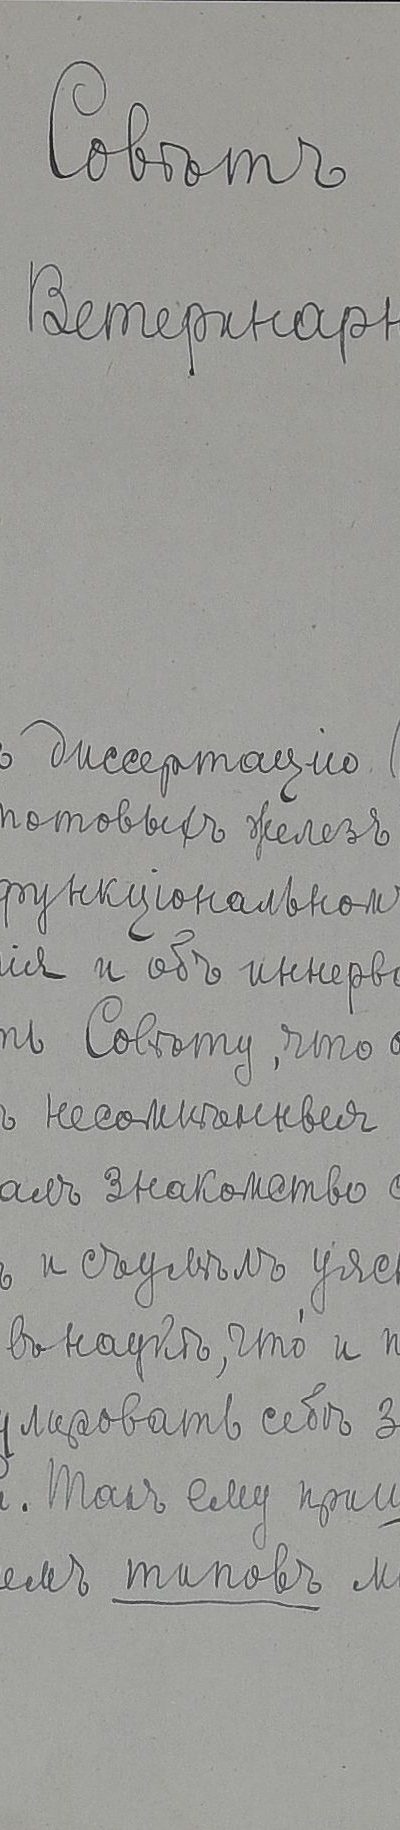 Совѣтъ
Ветеринарн
ъ диссертацію (
потовыхъ железъ
функціональномъ
нія и объ иннерва
ть Совѣту, что о
ъ несомнѣнныя
алъ знакомство с
ъ и съумѣлъ уясн
въ наукѣ, что́ и п
улировать себѣ з
. Такъ ему приш
емъ типовъ м